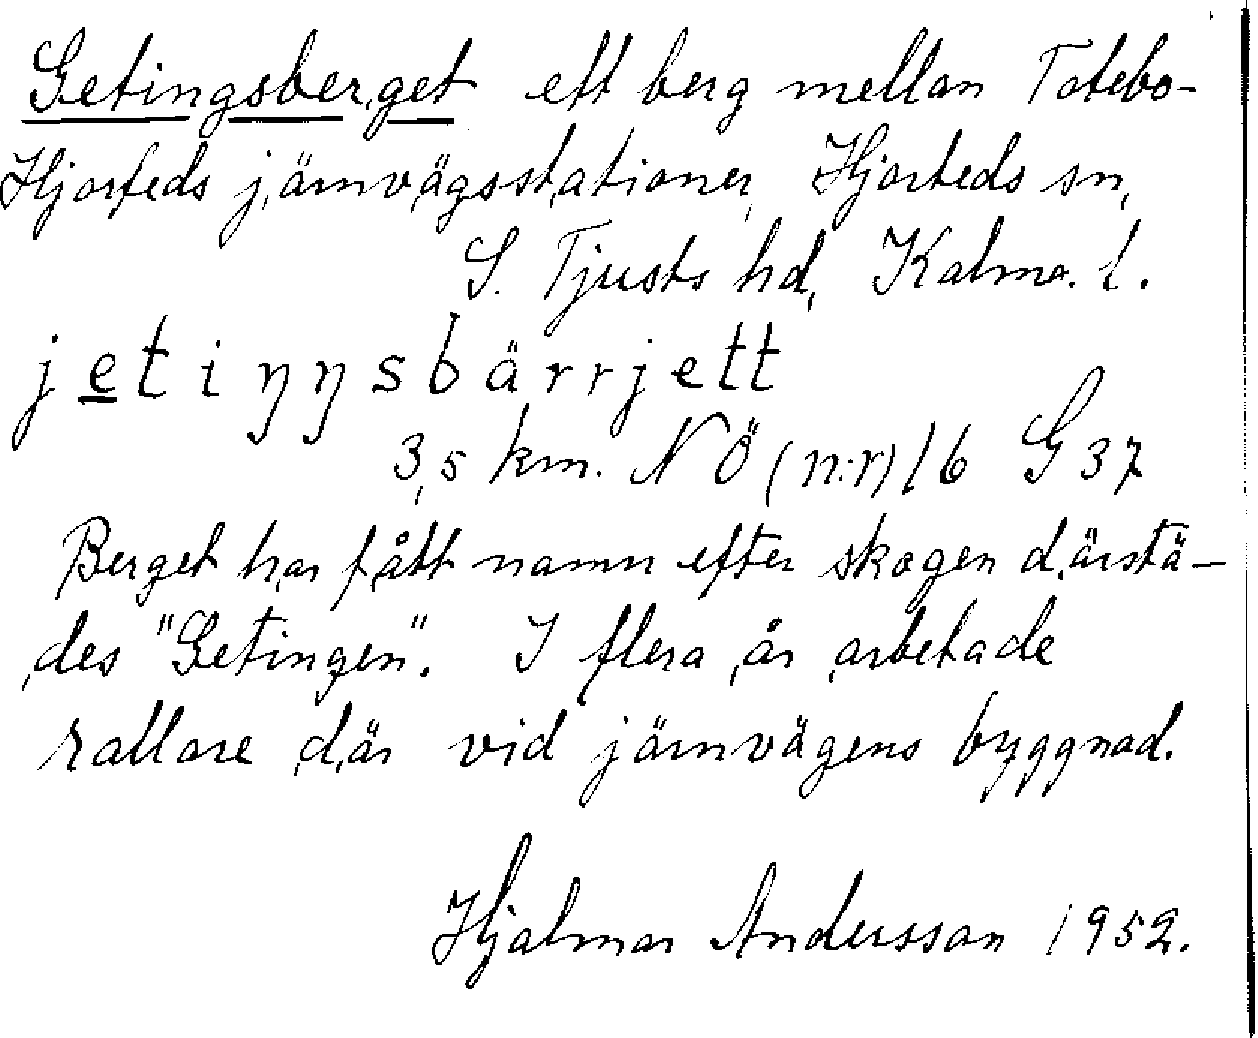 Getingsberget ett berg mellan Totebo-
Hjorteds järnvägsstationer, Hjorteds sn,
S. Tjusts hd, Kalma. l.
jetiŋŋsbärrjett
3,5 km. NÖ (n:r) 16 G 37
Berget har fått namn efter skogen därstä-
des "Getingen". I flera år arbetade
rallare där vid järnvägens byggnad.
Hjalmar Andersson 1952.